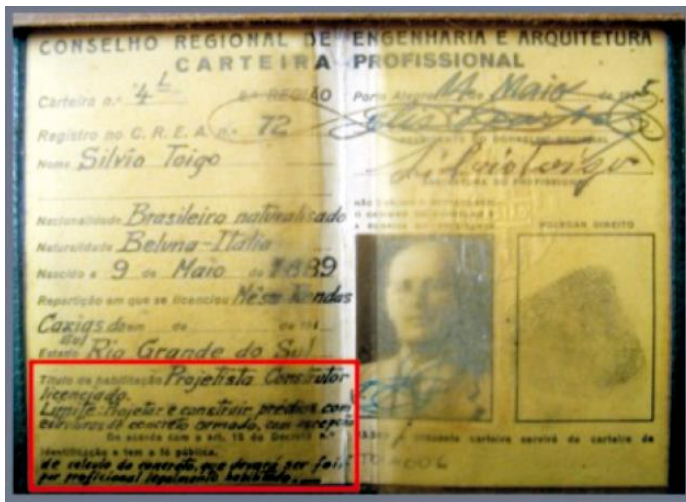 CONSELHO REGIONAL DE ENGENHARIA E ARQUITETURA
CARTEIRA PROFISSIONAL
Carteira n.º 4
8.ª REGIÃO
Registro no C. R. E. A. n.º 72
Nome Silvio Toigo
Nacionalidade Brasileiro naturalisado
Naturalidade Beluna-Italia
Nascido a 9 de Maio de 1889
Repartição em que se licenciou Mesa Rendas
Caxias do Sul em de de 19
Estado Rio Grande do Sul
Título de habilitação Projetista Construtor
licenciado.
Limite: Projetar e construir prédios com
estruturas de concreto armado, com
De acordo com o art. 15 do Decreto n.º
identificação e tem a fé pública.
de calculo do concreto, que deverá ser feito
por proficional legalmente habilitado.
Porto Alegre, de Maio de
Silvio Toigo
ASSINATURA DO PROFISSIONAL
POLEGAR DIREITO
presente carteira servirá de carteira de